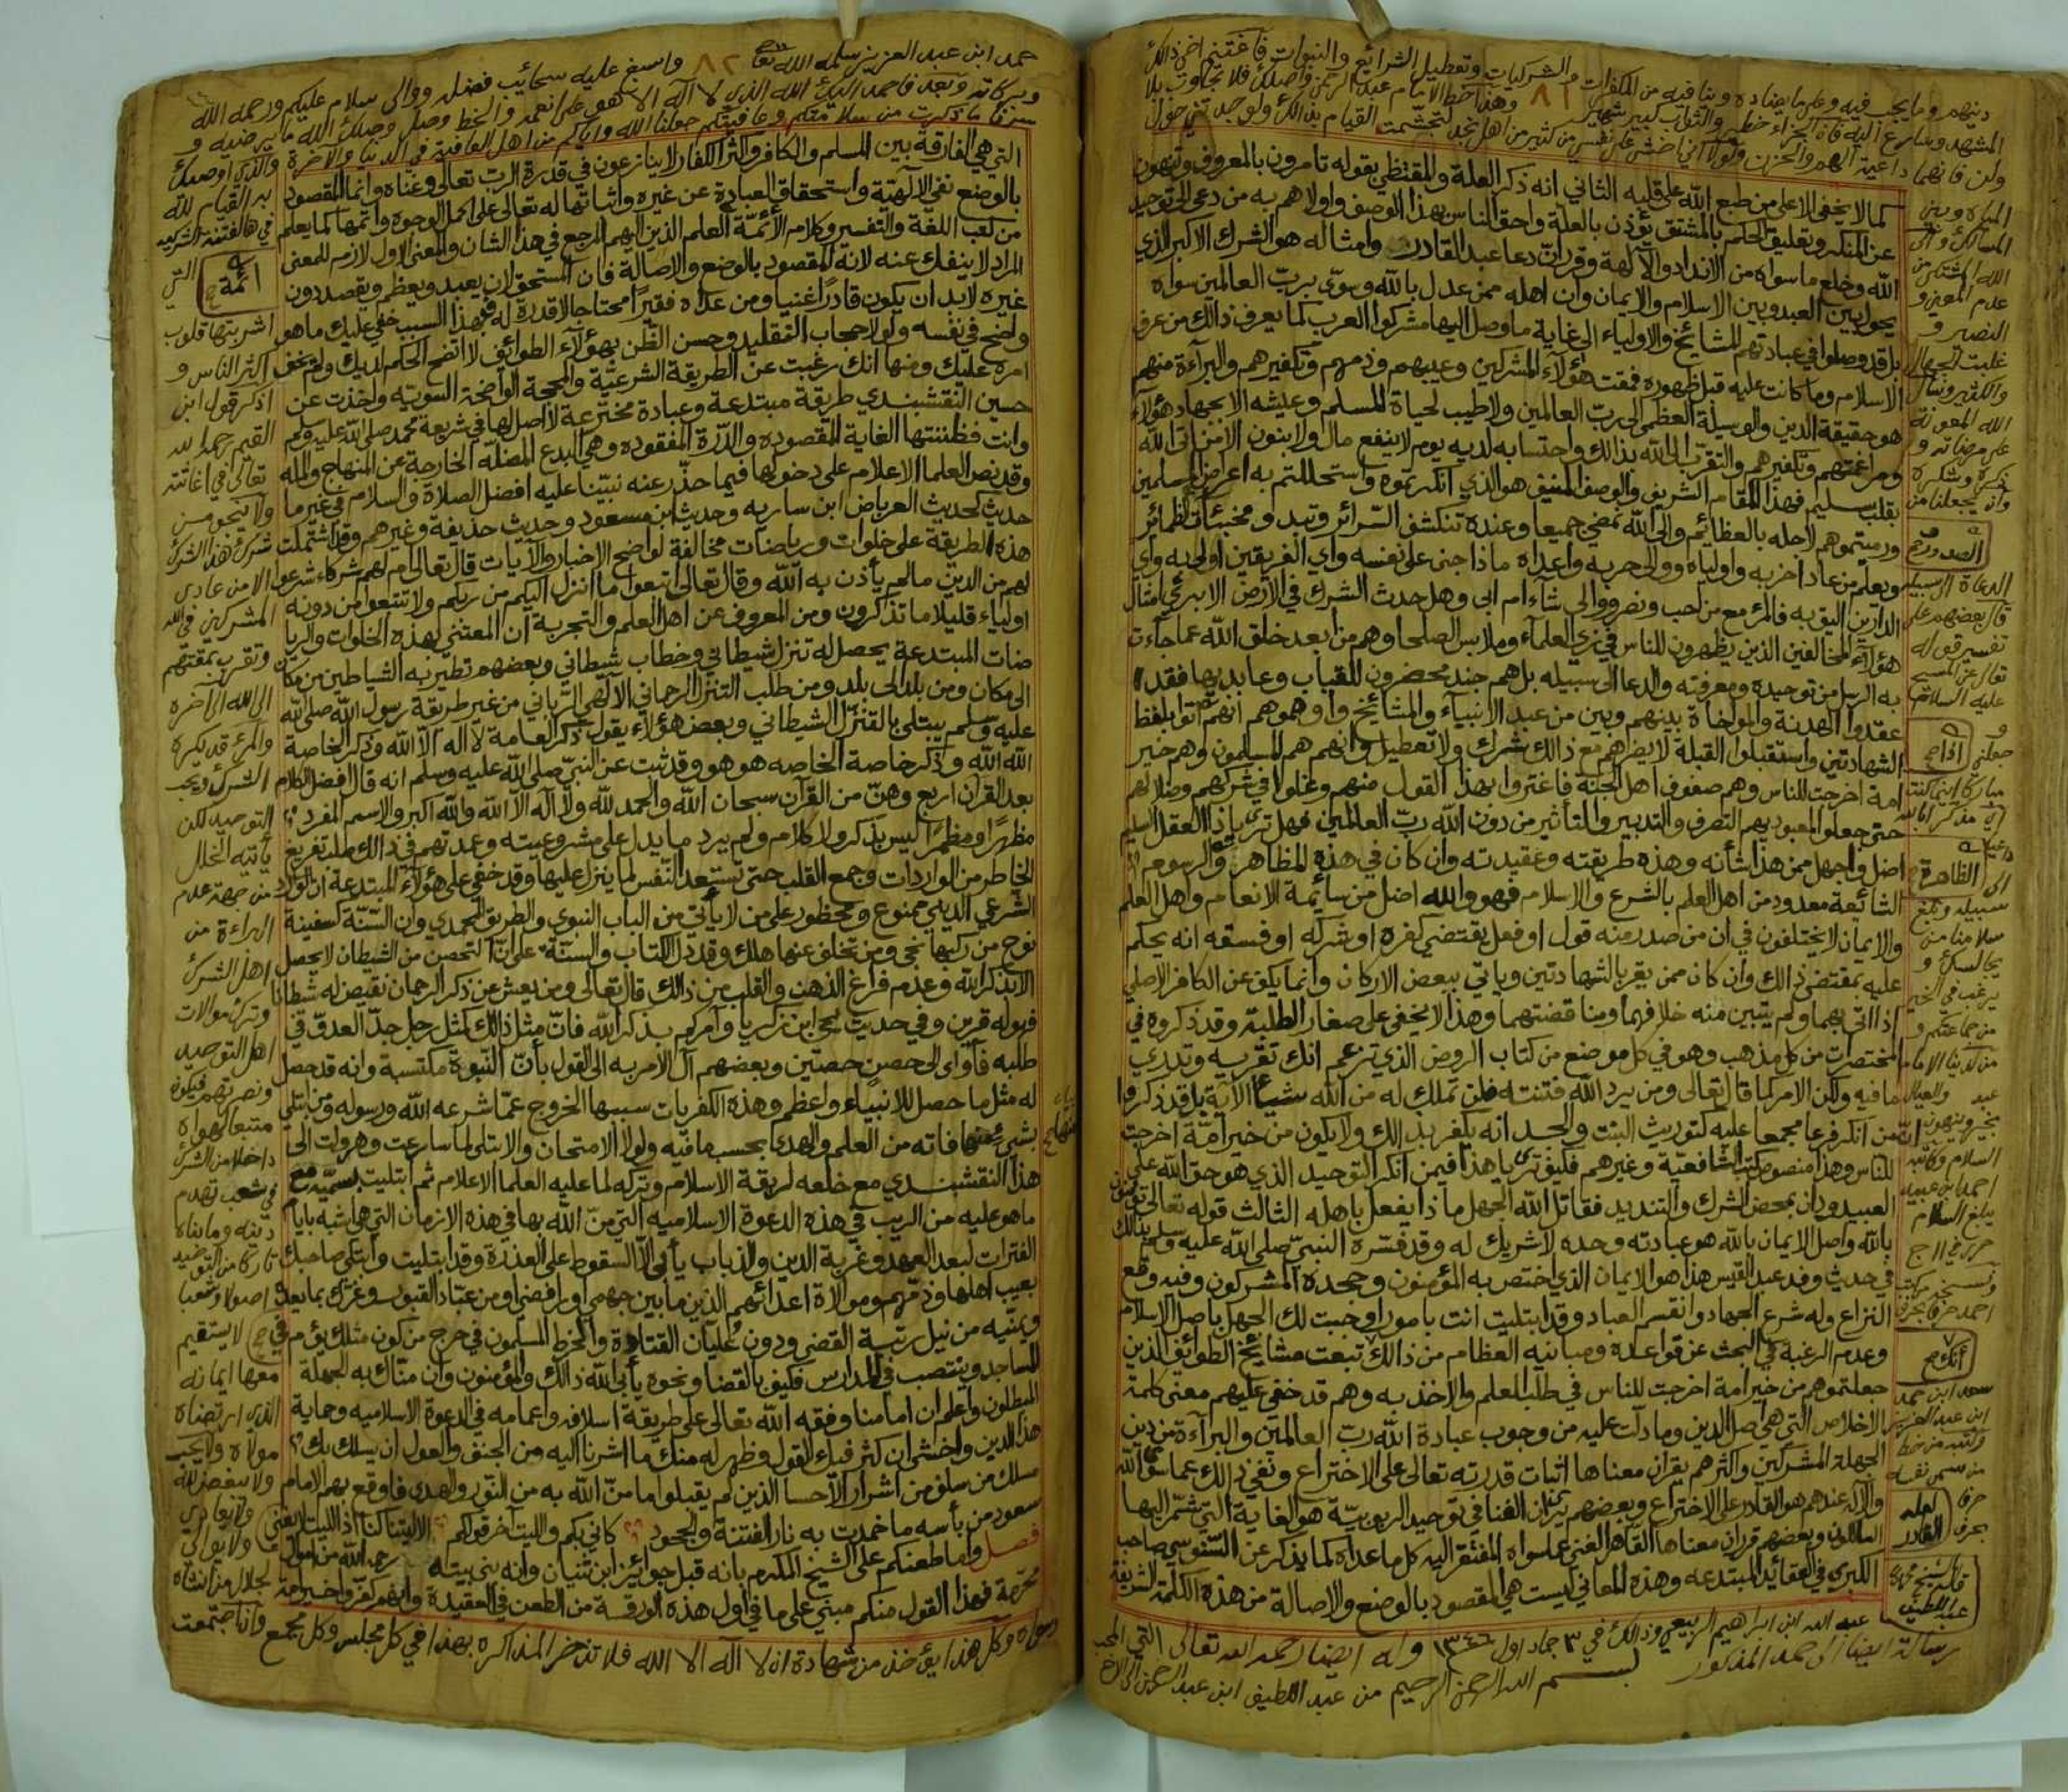 دينهم وما يجب فيه وعلى ما يضاده وينافيه من المكفرات والشركيات وتعطيل الشرائع والنبوات فاغتنم اخي ذالك
٨١
المشهد وسارع اليه فان الجزاء خطير والثواب كبير شهير وهذا خط الامام عبد الرحمن واصلك فلا يجاوب بلا
ولن فانهما داعية الهم والحزن ولولا اني اخشى على نفسي من كثير من اهل نجد لتجشمت القيام بذالك ولو حد تني حول
كما لا يخفى الا على من طبع الله على قلبه الثاني انه ذكر العلة والمقتظي بقوله تامرون بالمعروف وتنهون
عن المنكر وتعليق الحكم بالمشتق يؤذن بالعلة واحق الناس بهذا الوصف واولاهم به من دعى الى توحيد
الله وخلع ما سواه من الانداد والآلهة وقرر ان دعا عبد القادر وامثاله هو الشرك الاكبر الذي
يحول بين العبد وبين الاسلام والايمان وان اهله ممن عدل بالله وسوى برب العالمين سواه
بل قد وصلوا في عبادتهم للمشائخ والاولياء الى غاية ما وصل اليها مشركوا العرب كما يعرف ذالك من عرف
الاسلام وما كانت عليه قبل ظهوره فمقت هؤلآء المشركين وعيبهم وذمهم وتكفيرهم والبرآءة منهم
هو حقيقة الدين والوسيلة العظمى الى رب العالمين ولا طيب لحياة المسلم وعيشه الا بجهاد هؤلآء
ومراغمتهم وتكفيرهم والتقرب الى الله بذالك واحتسابه لديه يوم لا ينفع مال ولا بنون الا من اتى الله
بقلب سليم فهذا المقام الشريف والوصف المنيف هو الذي انكرتموه واستحللتم به اعراض المسلمين
ورميتموهم لاجله بالعظائم والى الله نمضي جميعا وعنده تنكشف السرائر وتبد ومخبئات الظمائر
ويعلم من عادا حزبه واولياه ووالى حربه واعداه ماذا جنى على نفسه واي الفريقين اولى به واي
الدارين اليق به فالمرء مع من احب ونصر ووالى شاء ام ابى وهل حدث الشرك في الارض الا برءي امثال
هؤلآء المخالفين الذين يظهرون للناس في زي العلمآء وملابس الصلحا وهم من ابعد خلق الله عما جآءت
به الرسل من توحيده ومعرفته والدعا الى سبيله بل هم جند محضرون للقباب وعابديها فقد
عقدوا الهدنة والمواخاة بينهم وبين من عبد الانبيآء والمشائخ واوهموهم انهم اتوا بلفظ
الشهادتين واستقبلوا القبلة لا يضرهم مع ذالك شرك ولا تعطيل وانهم هم المسلمون وهم خير
امة اخرجت للناس وهم صفوف اهل الجنة فاغتروا بهذا القول منهم وغلوا في شركهم وضلالهم
حتى جعلوا لمعبوديهم التصرف والتدبير والتأثير من دون الله رب العالمين فهل ترى يا ذا العقل السليم
اضل واجهل ممن هذا شأنه وهذه طريقته وعقيدته وان كان في هذه المظاهر والرسوم
الشائعة معدود من اهل العلم بالشرع والاسلام فهو والله اضل من سائمة الانعام واهل العلم
والايمان لا يختلفون في ان من صدر منه قول او فعل يقتضي كفره او شركه او فسقه انه يحكم
عليه بمقتضى ذالك وان كان ممن يقر بالشهادتين وياتي ببعض الاركان وانما يكف عن الكافر الاصلي
اذا اتى بهما ولم يتبين منه خلافهما ومناقضتهما وهذا لا يخفى على صغار الطلبة وقد ذكروه في
المختصرات من كل مذهب وهو في كل موضع من كتاب الروض الذي تزعم انك تقريه وتدري
ما فيه ولكن الامر كما قال تعالى ومن يرد الله فتنته فلن تملك له من الله شيئا الآية بل قد ذكروا
ان من انكر فرعا مجمعا عليه كتوريث البنت والجد انه يكفر بذالك ولا يكون من خير امة اخرجت
للناس وهذا منصوص كتب الشافعية وغيرهم فكيف ترى يا هذا فيمن انكر التوحيد الذي هو حق الله على
العبيد ودان بمحض الشرك والتنديد فقاتل الله الجهل ماذا يفعل باهله الثالث قوله تعالى تؤمنون
بالله واصل الايمان بالله هو عبادته وحده لا شريك له وقد فسره النبي صلى الله عليه وسلم بذالك
في حديث وفد عبد القيس هذا هو الايمان الذي اختص به المؤمنون وجحده المشركون وفيه وقع
النزاع وله شرع الجهاد وانقسم العباد وقد ابتليت انت بامور اوجبت لك الجهل باصل الاسلام
وعدم الرغبة في البحث عن قواعده ومبانيه العظام من ذالك تبعت مشائخ الطوائف الذين
جعلتموهم من خير امة اخرجت للناس في طلب العلم والاخذ به وهم قد خفي عليهم معنى كلمة
الاخلاص التي هي اصل الدين وما دلت عليه من وجوب عبادة الله رب العالمين والبرآءة من دين
الجهلة المشركين واكثرهم يقرر ان معناها اثبات قدرته تعالى على الاختراع ونفي ذالك عما سوى الله
والاله عندهم هو القادر على الاختراع وبعضهم يرى ان الفنا في توحيد الربوبية هو الغاية التي شمر اليها
السالكون وبعضهم قرر ان معناها القاهر الغني عما سواه المفتقر اليه كل ما عداه كما يذكر عن السنوسي صاحب
الكبرى في العقائد المبتدعه وهذه المعاني ليست هي المقصود بالوضع والاصالة من هذه الكلمة الشريفة
عبد الله ابن ابراهيم الربيعي وذالك في ٣ جماد اول ١٣٤٦ وله ايضا رحمه الله تعالى
رسالة ايضا الى حمد المذكور بسم الله الرحمن الرحيم من عبد اللطيف ابن عبد الرحمن الى الاخ
المياه وبين
المسالك والى
الله المشتكى من
عدم المعين و
النصير و
غلبت الجهال
والكثير ونسال
الله المعونة
على مرضاته و
ذكره وشكره
وان يجعلنا من
الدعاة الى سبيله
قال بعضهم على
تفسير قوله
تعالى عن المسيح
عليه السلام
و
جعلني
مباركا اينما كنت
اي مذكرا بالله
داعيا
الى
سبيله وبلغ
سلامنا من
يجالسك و
يرغب في الخير
من جماعتكم و
من لدينا الامام
عبد والعيال
بخير وينهون
السلام وكاتبه
احمد ابن عبيد
يبلغ السلام
سعد ابن حمد
ابن عبد العزيز
حمد ابن عبد العزيز سلمه الله تعا ٨٢ واسبغ عليه سحائب فضله ووالى سلام عليكم ورحمه الله
وبركاته وبعد فاحمد اليك الله الذي لا آله الا هو على انعمه والخط وصل وصلك الله ما يرضيه و
سرنا ما ذكرت من سلامتكم وعافيتكم جعلنا الله واياكم من اهل العافية في الدنيا والآخرة والذي اوصيك
التي هي الفارقة بين المسلم والكافر واكثر الكفار لا ينازعون في قدرة الرب تعالى وغناه وانما المقصود
بالوضع نفي الآلهية واستحقاق العبادة عن غيره واثباتها له تعالى على اكمل الوجوه واتمها كما يعلم
من كتب اللغة والتفسير وكلام الأئمة العلم الذين اليهم المرجع في هذا الشان والمعنى الاول لازم للمعنى
المراد لا ينفك عنه لانه المقصود بالوضع والاصالة فان المستحق لان يعبد ويعظم ويقصد دون
غيره لابد ان يكون قادرا غنيا ومن عداه فقيرا محتاجا لا قدرة له فبهذا السبب خفي عليك ما هو
واضح في نفسه ولولا حجاب التقليد وحسن الظن بهؤلآء الطوائف لا اتضح الحكم لديك ولم يخف
امره عليك ومنها انك رغبت عن الطريقة الشرعية والمحجة الواضحة السوية واخذت عن
حسين النقشبندي طريقة مبتدعة وعبادة مخترعة لا اصل لها في شريعة محمد صلى الله عليه وسلم
وانت فظننتها الغاية المقصوده والدرة المفقوده وهي البدع المضلة الخارجة عن المنهاج والمله
وقد نص العلما الاعلام على دخولها فيما حذر عنه نبينا عليه افضل الصلاة والسلام في غير ما
حديث كحديث العرباض ابن ساريه وحديث ابن مسعود وحديث حذيفه وغيرهم وقد اشتملت
هذه الطريقة على خلوات ورياضات مخالفة لواضح الاخبار والآيات قال تعالى ام لهم شركاء شرعوا
لهم من الدين ما لم يأذن به الله وقال تعالى اتبعوا ما انزل اليكم من ربكم ولا تتبعوا من دونه
اولياء قليلا ما تذكرون ومن المعروف عن اهل العلم والتجربة ان المعتني بهذه الخلوات والريا
ضات المبتدعة يحصل له تنزل شيطاني وخطاب شيطاني وبعضهم تطير به الشياطين من مكان
الى مكان ومن بلد الى بلد ومن طلب التنزل الرحماني الآلهي الرباني من غير طريقة رسول الله صلى الله
عليه وسلم يبتلى بالتنزل الشيطاني وبعض هؤلآء يقول ذكر العامة لا آله الا الله وذكر الخاصة
الله الله وذكر خاصة الخاصه هو هو وقد ثبت عن النبي صلى الله عليه وسلم انه قال افضل الكلام
بعد القرآن اربع وهن من القرآن سبحان الله والحمد لله ولا آله الا الله والله اكبر والاسم المفرد
مظهرا ومظمرا ليس بذكر ولا كلام ولم يرد ما يدل على مشروعيته وعمدتهم في ذالك طلب تفريغ
الخاطر من الواردات وجمع القلب حتى تستعد النفس لما ينزل عليها وقد خفي على هؤلآء المبتدعة ان الوارد
الشرعي الديني ممنوع ومحظور على من لا يأتي من الباب النبوي والطريق المحمدي وان السنة كسفينة
نوح من ركبها نجى ومن تخلف عنها هلك وقد دل الكتاب والسنة على ان التحصن من الشيطان لا يحصل
الا بذكر الله وعدم فراغ الذهن والقلب من ذالك قال تعالى ومن يعش عن ذكر الرحمان نقيض له شيطانا
فهو له قرين وفي حديث يحيى ابن زكريا وآمركم بذكر الله فان مثل ذالك كمثل رجل جد العدو في
طلبه فآوى الى حصن حصين وبعضهم آل الامر به الى القول بأن النبوة مكتسبة وانه قد حصل
له مثل ما حصل للانبياء واعظم وهذه الكفريات سببها الخروج عما شرعه الله ورسوله ومن ابتلي
بشيء منها فاته من العلم والهدى بحسب ما فيه ولولا الامتحان والابتلى لما سارعت وهرولت الى
هذا النقشبندي مع خلعه لربقة الاسلام وتركه لما عليه العلما الاعلام ثم ابتليت بسميه مع
ما هو عليه من الريب في هذه الدعوة الاسلاميه التي من الله بها في هذه الازمان التي هي اشبه بايام
الفترات لبعد العهد وغربة الدين والذباب يأبى الا السقوط على العذرة وقد ابتليت وابتلي صاحبك
بعيب اهلها وذمهم وموالاة اعدائهم الذين ما بين جهمي او رافضي او من عباد القبور وغرك بما يعدك
ويمنيه من نيل رتبة القضى ودون عليان القتادة والخرط المسلمون في حرج من كون مثلك يؤم في
المساجد وينتصب في المدارس فكيف بالقضا ونحوه يأبى الله ذالك والمؤمنون وان مناك به الجهلة
المبطلون واعلم ان امامنا وفقه الله تعالى على طريقة اسلافه واعمامه في الدعوة الاسلاميه وحماية
هذا الدين واخشى ان كثر فيك القول وظهر له منك ما اشرنا اليه من الجنف والعول ان يسلك بك
مسلك من سلف من اشرار الاحسا الذين لم يقبلوا ما من الله به من النور والهدى فاوقع بهم الامام
سعود من بأسه ما خمدت به نار الفتنة والجحود كاني بكم والليت آخر قولكم الا ليتنا كنا اذ الليت لا يغني
فصل واما طعنكم على الشيخ المكرم بانه قبل جوائز ابن ثنيان وانه بنى بيته رحمه الله من اموال
محرمة فهذا القول منكم مبني على ما في اول هذه الورقة من الطعن في العقيدة
وكل هذا يؤخذ من شهادة ان لا آله الا الله فلا تدخر المذاكره بهذا في كل مجلس وكل مجمع وان اجتمعت
به القيام لله
في هالفتنة الشركيه
التي
أئمة صح
اشربتها قلوب
اكثر الناس و
اذكر قول ابن
القيم رحمه الله
تعالى في اغاثته
ولا ينجو من
شرك هذا الشرك
الا من عادى
المشركين في الله
وتقرب بمقتهم
الى الله الى آخره
والمرء قد يكره
الشرك ويحب
التوحيد لكن
يأتيه الخلل
من جهة عدم
البراءة من
اهل الشرك
وترك موالات
اهل التوحيد
ونصرتهم فيكون
متبعا لهواه
داخلا من الشرك
في شعب تهدم
دينه وما بناه
تاركا من التوحيد
اصولا وشعبا
لا يستقيم
معها ايمانه
الذي ارتضاه
مولاه ولا يحب
ولا يبغض لله
ولا يعادي
ولا يوالي
لجلال من انشاه
وسواه